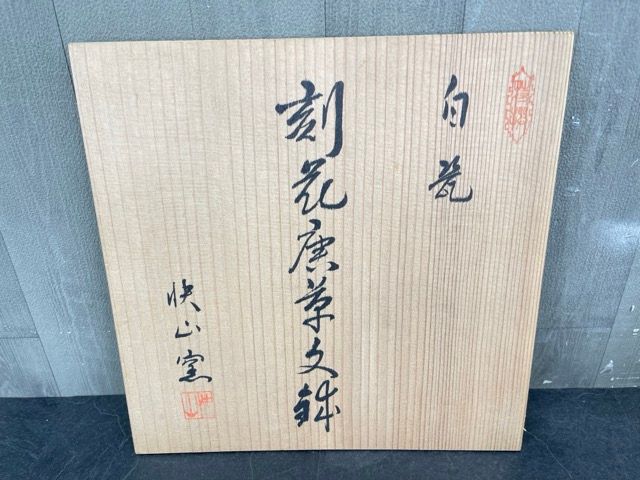 白瓷
刻花唐草文鉢
快山窯